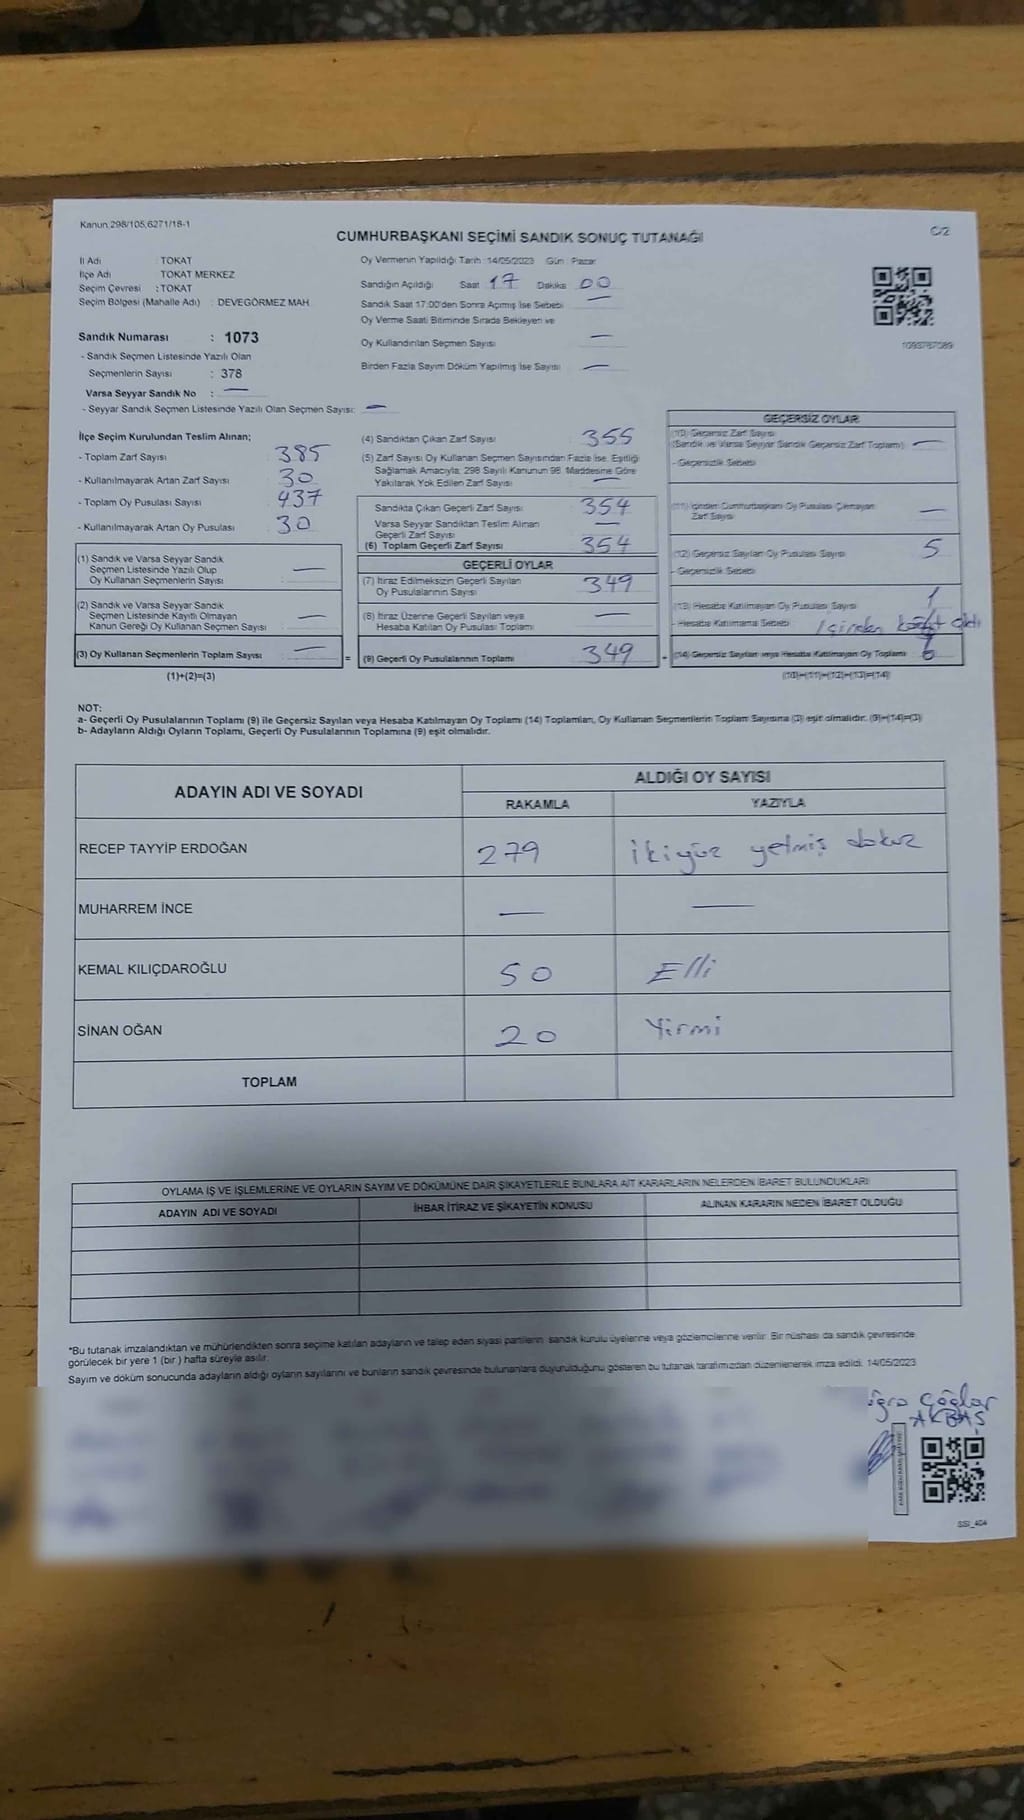 Kanun 298/105,6271/18-1
C/2
CUMHURBAŞKANI SEÇİMİ SANDIK SONUÇ TUTANAĞI
İl Adı : TOKAT
İlçe Adı TOKAT MERKEZ
Seçim Çevresi : TOKAT
Seçim Bölgesi (Mahalle Adı) : DEVEGÖRMEZ MAH
Sandık Numarası : 1073
- Sandık Seçmen Listesinde Yazılı Olan
Seçmenlerin Sayısı : 378
Varsa Seyyar Sandık No : —
- Seyyar Sandık Seçmen Listesinde Yazılı Olan Seçmen Sayısı: —
Oy Vermenin Yapıldığı Tarih : 14/05/2023 Gün : Pazar
Sandığın Açıldığı Saat 17 Dakika 00
Sandık Saat 17:00'den Sonra Açmış İse Sebebi —
Oy Verme Saati Bitiminde Sırada Bekleyen ve
Oy Kullandırılan Seçmen Sayısı —
Birden Fazla Sayım Döküm Yapılmış İse Sayısı —
1093787089
İlçe Seçim Kurulundan Teslim Alınan;
- Toplam Zarf Sayısı 385
- Kullanılmayarak Artan Zarf Sayısı 30
- Toplam Oy Pusulası Sayısı 437
- Kullanılmayarak Artan Oy Pusulası 30
(1) Sandık ve Varsa Seyyar Sandık
Seçmen Listesinde Yazılı Olup
Oy Kullanan Seçmenlerin Sayısı : —
(2) Sandık ve Varsa Seyyar Sandık
Seçmen Listesinde Kayıtlı Olmayan
Kanun Gereği Oy Kullanan Seçmen Sayısı : —
(3) Oy Kullanan Seçmenlerin Toplam Sayısı : —
(1)+(2)=(3)
(4) Sandıktan Çıkan Zarf Sayısı : 355
(5) Zarf Sayısı Oy Kullanan Seçmen Sayısından Fazla İse, Eşitliği
Sağlamak Amacıyla; 298 Sayılı Kanunun 98. Maddesine Göre
Yakılarak Yok Edilen Zarf Sayısı : —
Sandıkta Çıkan Geçerli Zarf Sayısı : 354
Varsa Seyyar Sandıktan Teslim Alınan
Geçerli Zarf Sayısı : —
(6) Toplam Geçerli Zarf Sayısı : 354
GEÇERLİ OYLAR
(7) İtiraz Edilmeksizin Geçerli Sayılan
Oy Pusulalarının Sayısı : 349
(8) İtiraz Üzerine Geçerli Sayılan veya
Hesaba Katılan Oy Pusulası Toplamı : —
= (9) Geçerli Oy Pusulalarının Toplamı : 349
GEÇERSİZ OYLAR
(10) Geçersiz Zarf Sayısı
(Sandık ve Varsa Seyyar Sandık Geçersiz Zarf Toplamı) : —
- Geçersizlik Sebebi :
(11) İçinden Cumhurbaşkanı Oy Pusulası Çıkmayan
Zarf Sayısı : —
(12) Geçersiz Sayılan Oy Pusulası Sayısı : 5
- Geçersizlik Sebebi :
(13) Hesaba Katılmayan Oy Pusulası Sayısı : 1
- Hesaba Katılmama Sebebi : İçinden kağıt çıktı
+ (14) Geçersiz Sayılan veya Hesaba Katılmayan Oy Toplamı : 6
(10)+(11)+(12)+(13)=(14)
NOT:
a- Geçerli Oy Pusulalarının Toplamı (9) ile Geçersiz Sayılan veya Hesaba Katılmayan Oy Toplamı (14) Toplamları, Oy Kullanan Seçmenlerin Toplam Sayısına (3) eşit olmalıdır. (9)+(14)=(3)
b- Adayların Aldığı Oyların Toplamı, Geçerli Oy Pusulalarının Toplamına (9) eşit olmalıdır.
ADAYIN ADI VE SOYADI
ALDIĞI OY SAYISI
RAKAMLA YAZIYLA
RECEP TAYYİP ERDOĞAN 279 ikiyüz yetmiş dokuz
MUHARREM İNCE — —
KEMAL KILIÇDAROĞLU 50 Elli
SİNAN OĞAN 20 Yirmi
TOPLAM
OYLAMA İŞ VE İŞLEMLERİNE VE OYLARIN SAYIM VE DÖKÜMÜNE DAİR ŞİKAYETLERLE BUNLARA AİT KARARLARIN NELERDEN İBARET BULUNDUKLARI
ADAYIN ADI VE SOYADI İHBAR İTİRAZ VE ŞİKAYETİN KONUSU ALINAN KARARIN NEDEN İBARET OLDUĞU
*Bu tutanak imzalandıktan ve mühürlendikten sonra seçime katılan adayların ve talep eden siyasi partilerin sandık kurulu üyelerine veya gözlemcilerine verilir. Bir nüshası da sandık çevresinde
görülecek bir yere 1 (bir ) hafta süreyle asılır.
Sayım ve döküm sonucunda adayların aldığı oyların sayılarını ve bunların sandık çevresinde bulunanlara duyurulduğunu gösteren bu tutanak tarafımızdan düzenlenerek imza edildi. 14/05/2023
Çağlar
AKBAŞ
SSI_404